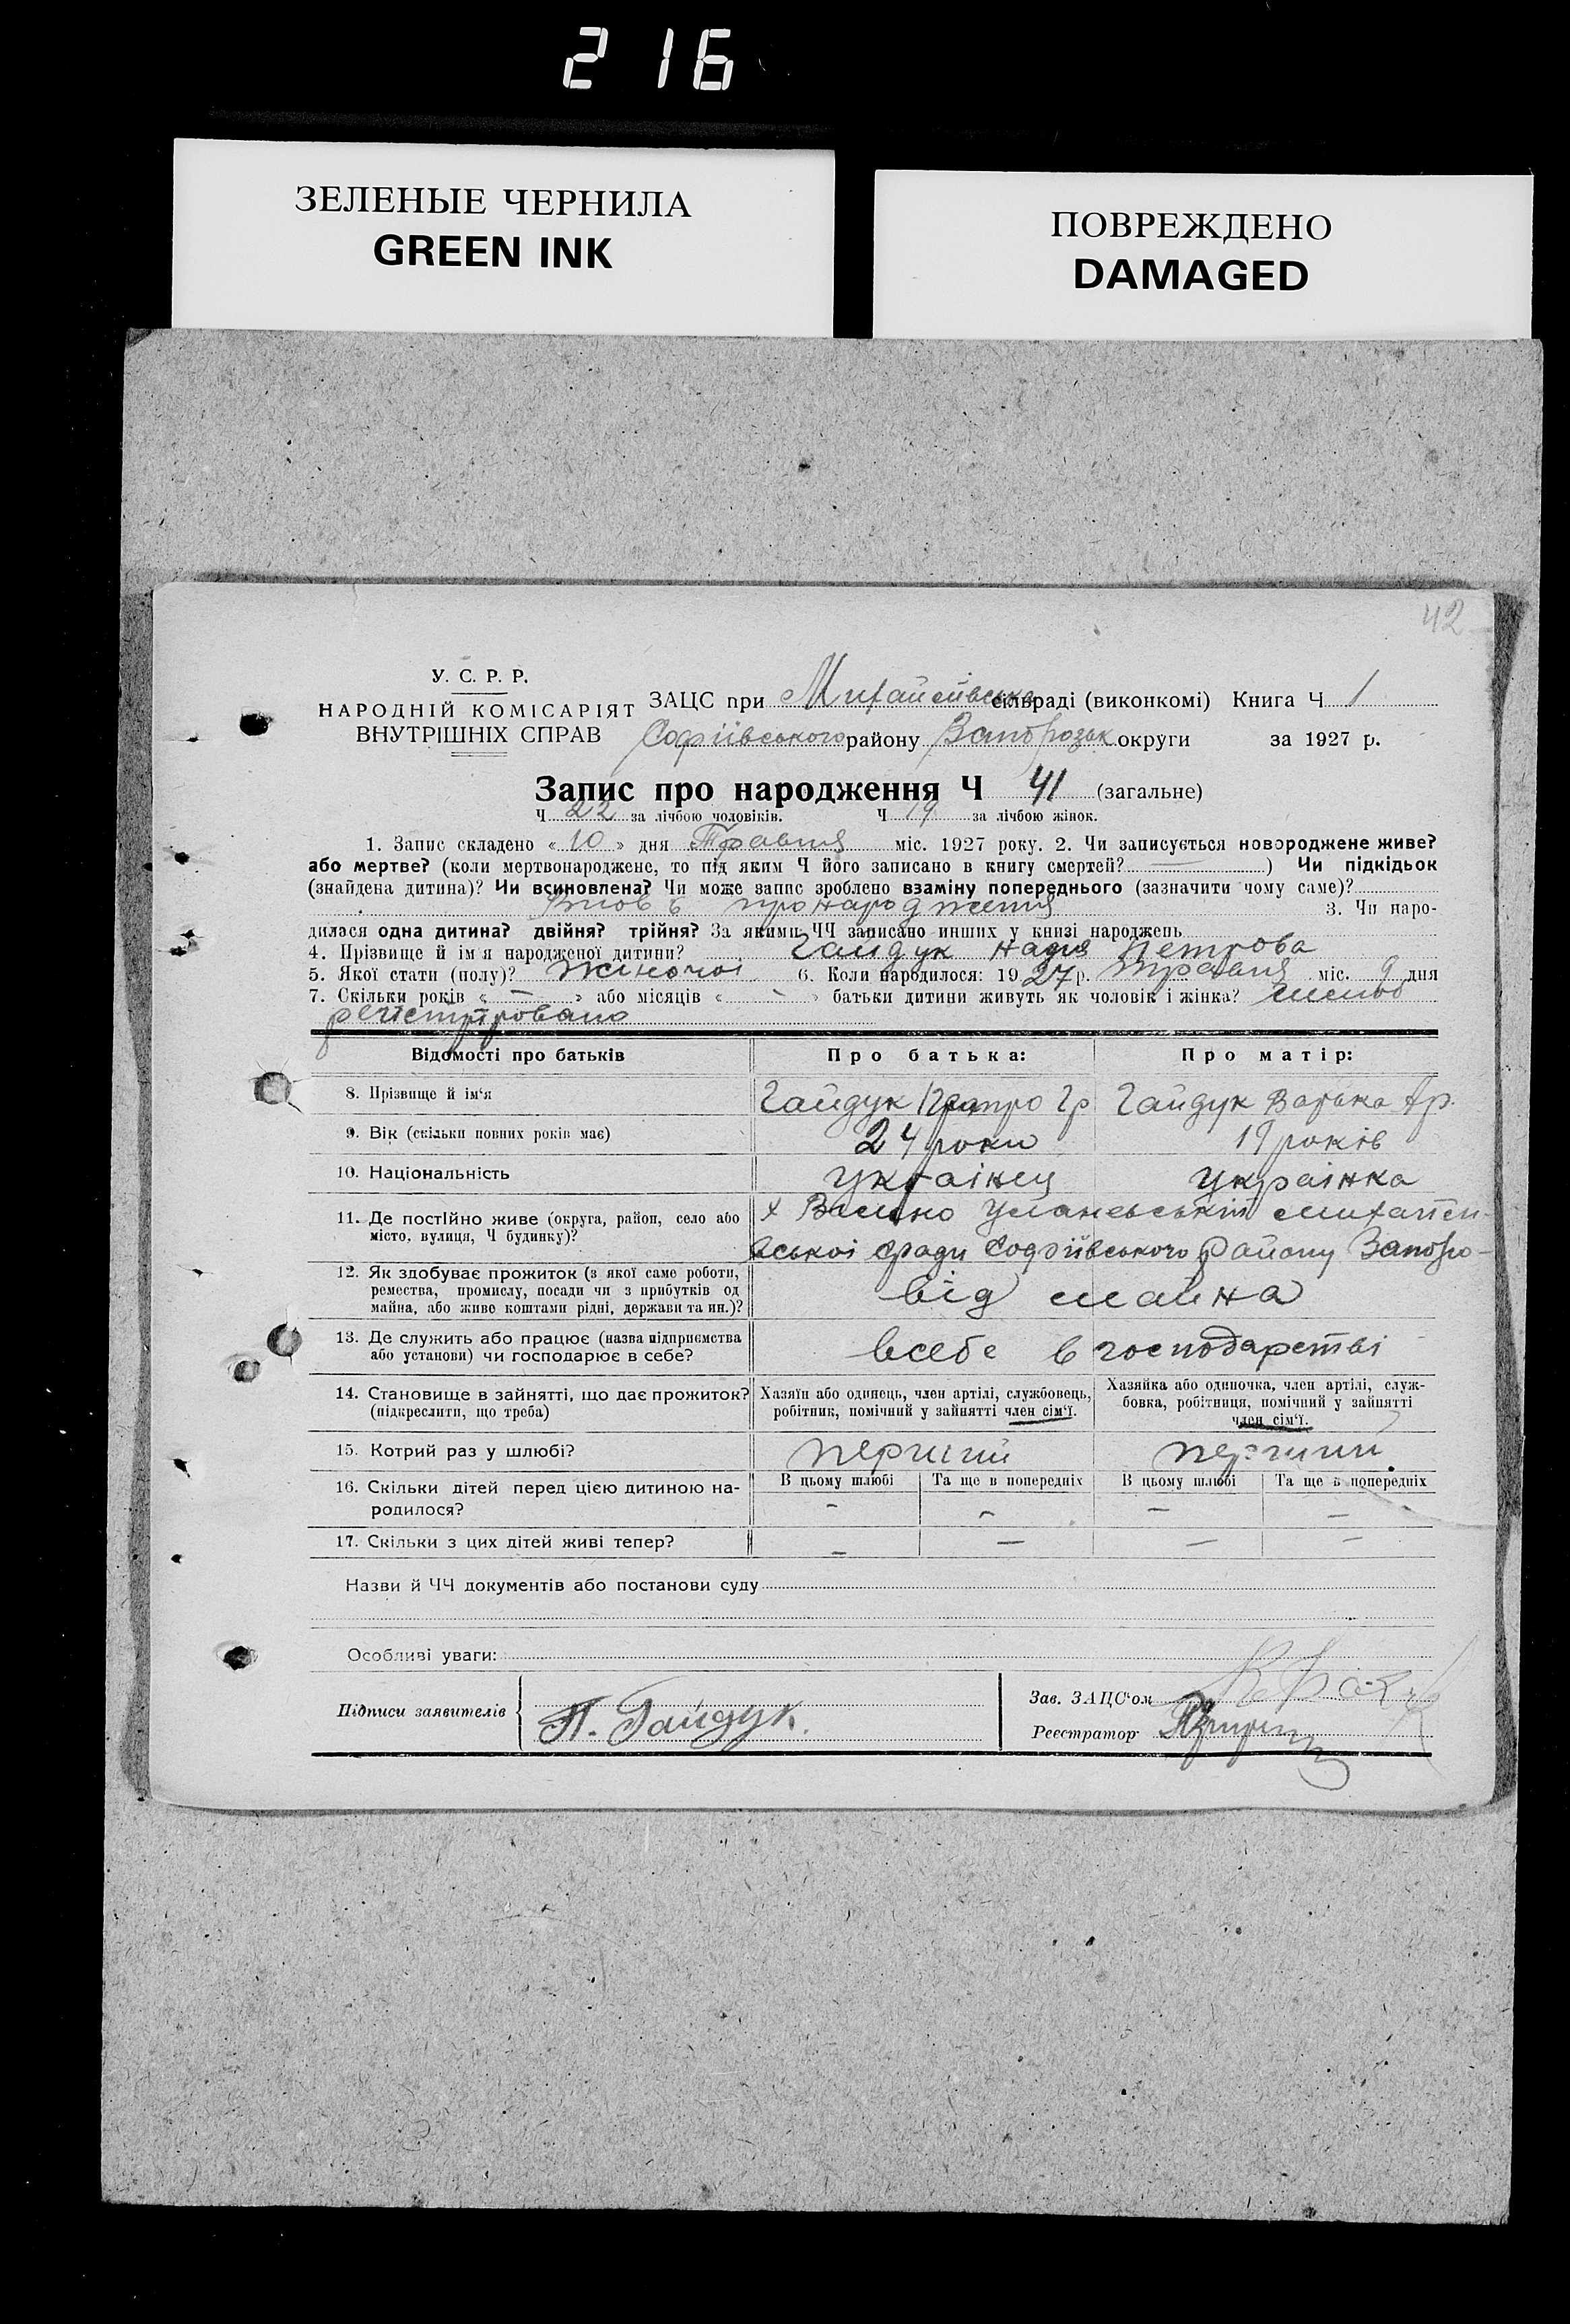 216
ЗЕЛЕНЫЕ ЧЕРНИЛА
GREEN INK
ПОВРЕЖДЕНО
DAMAGED
42
У. С. Р. Р.
НАРОДНІЙ КОМІСАРІЯТ
ВНУТРІШНІХ СПРАВ
ЗАЦС при сільраді (виконкомі) Книга Ч 1
Софіївського району округи за 1927 р.
Запис про народження Ч 41 (загальне)
Ч 22 за лічбою чоловіків. Ч 19 за лічбою жінок.
1. Запис складено « 10 » дня Травня міс. 1927 року. 2. Чи записується новороджене живе?
або мертве? (коли мертвонароджене, то під яким Ч його записано в книгу смертей? ) Чи підкідьок
(знайдена дитина)? Чи всиновлена? Чи може запис зроблено взаміну попереднього (зазначити чому саме)?
про народження 3. Чи наро-
дилася одна дитина? двійня? трійня? За якими ЧЧ записано инших у книзі народжень
4. Прізвище й ім'я народженої дитини? Гайдук Надия Петрова
5. Якої стати (полу)? Жіночоі 6. Коли народилося: 1927 р. травня міс. 9 дня
7. Скільки років « — » або місяців « - » батьки дитини живуть як чоловік і жінка?
регістріровано
Відомості про батьків
Про батька:
Про матір:
8. Прізвище й ім'я
Гайдук Петро Гр
Гайдук Варька
9. Вік (скільки повних років має)
24 роки
19 років
10. Національність
Українец
Українка
11. Де постійно живе (округа, район, село або
місто, вулиця, Ч будинку)?
вськоі сради Софіївського району Запоро-
12. Як здобуває прожиток (з якої саме роботи,
ремества, промислу, посади чи з прибутків од
майна, або живе коштами рідні, держави та ин.)?
від майна
13. Де служить або працює (назва підприємства
або установи) чи господарює в себе?
всебе в господарстві
14. Становище в зайнятті, що дає прожиток?
(підкреслити, що треба)
Хазяїн або одинець, член артілі, службовець,
робітник, помічний у зайнятті член сім'ї.
Хазяйка або одиночка, член артілі, служ-
бовка, робітниця, помічний у зайнятті
член сім'ї.
15. Котрий раз у шлюбі?
перший
перший
16. Скільки дітей перед цією дитиною на-
родилося?
В цьому шлюбі
Та ще в попередніх
В цьому шлюбі
Та ще в попередніх
- - — —
17. Скільки з цих дітей живі тепер?
— — — —
Назви й ЧЧ документів або постанови суду
Особливі уваги:
Підписи заявителів
П. Гайдук.
Зав. ЗАЦС'ом
Реєстратор